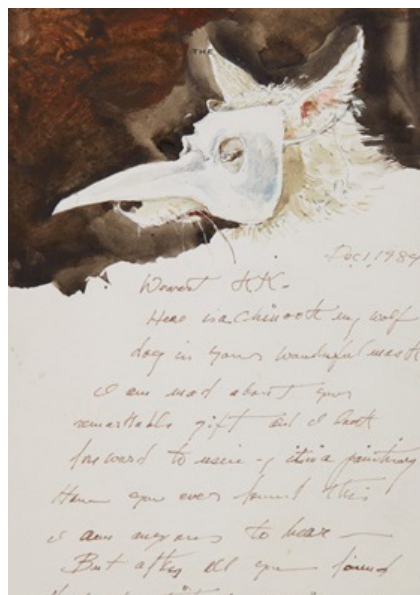 THE
Dec 1 1984
Dearest H.K-
Here is a Chinook my wolf
dog in your wonderful mask
I am mad about your
remarkable gift and I look
forward to using it in a painting
How you ever found this
I am anxious to hear —
But after all you found